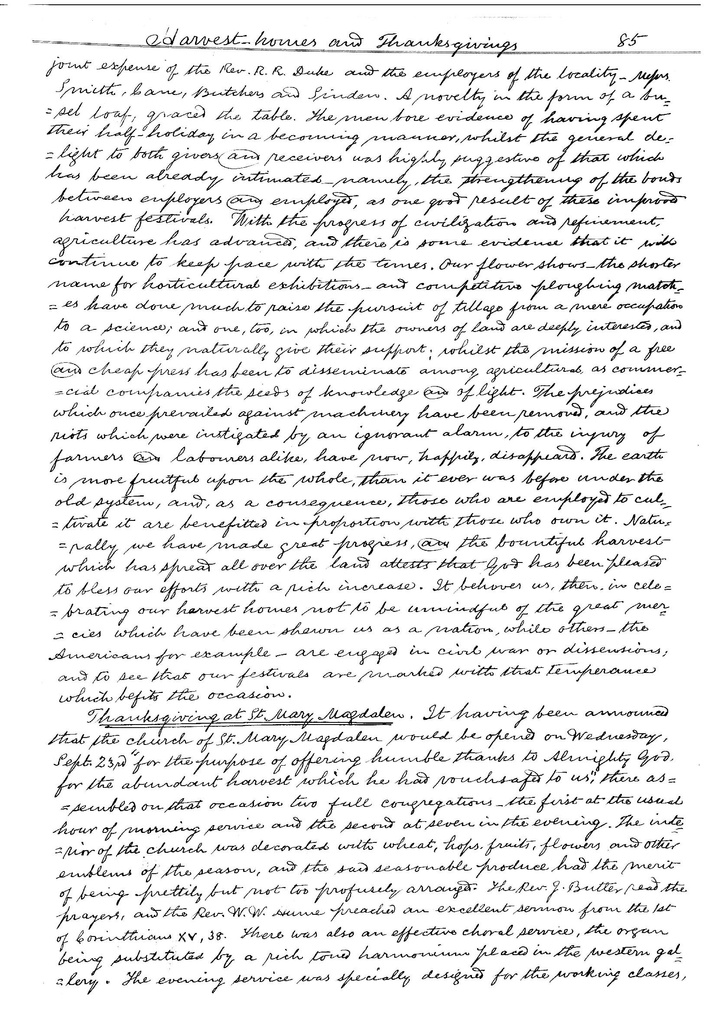 Harvest-homes and Thanksgivings 85
joint expense of the Rev. R. R. Duke and the employers of the locality - Messrs.
Smith, Cane, Butchers and Linden. A novelty in the form of a bu-
=sel loaf, graced the table. The men bore evidence of having spent
their half-holiday in a becoming manner, whilst the general de-
=light to both givers and receivers was highly suggestive of that which
has been already intimated - namely, the strengthening of the bonds
between employers and employed, as one good result of these improved
harvest festivals. With the progress of civilization and refinement,
agriculture has advanced, and there is some evidence that it will
continue to keep pace with the times. Our flower shows - the shorter
name for horticultural exhibitions - and competitive ploughing match-
=es have done much to raise the pursuit of tillage from a mere occupation
to a science; and one, too, in which the owners of land are deeply interested, and
to which they naturally give their support; whilst the mission of a free
and cheap press has been to disseminate among agricultural as commer-
=cial companies the seeds of knowledge and of light. The prejudices
which once prevailed against machinery have been removed, and the
riots which were instigated by an ignorant alarm, to the injury of
farmers and labourers alike, have now, happily, disappeared. The earth
is more fruitful upon the whole, than it ever was before under the
old system, and, as a consequence, those who are employed to cul-
=tivate it are benefitted in proportion with those who own it. Natu-
=rally we have made great progress, and the bountiful harvest
which has spread all over the land attests that God has been pleased
to bless our efforts with a rich increase. It behoves us, then, in cele=
=brating our harvest homes not to be unmindful of the great mer-
=cies which have been shewn us as a nation, while others - the
Americans for example - are engaged in civil war or dissensions;
and to see that our festivals are marked with that temperance
which befits the occasion.
Thanksgiving at St. Mary Magdalen. It having been announced
that the church of St. Mary Magdalen would be opened on Wednesday,
Sept. 23rd "for the purpose of offering humble thanks to Almighty God,
for the abundant harvest which he had vouchsafed to us", there as=
=sembled on that occasion two full congregations - the first at the usual
hour of morning service and the second at seven in the evening. The inte-
=rior of the church was decorated with wheat, hops, fruits, flowers and other
emblems of the season, and the said seasonable produce had the merit
of being prettily but not too profusely arranged. The Rev. J. Butler read the
prayers, and the Rev. W. W. Hume preached an excellent sermon from the 1st
of Corinthians XV, 38. There was also an effective choral service, the organ
being substituted by a rich toned harmonium placed in the western gal-
=lery. The evening service was specially designed for the working classes,